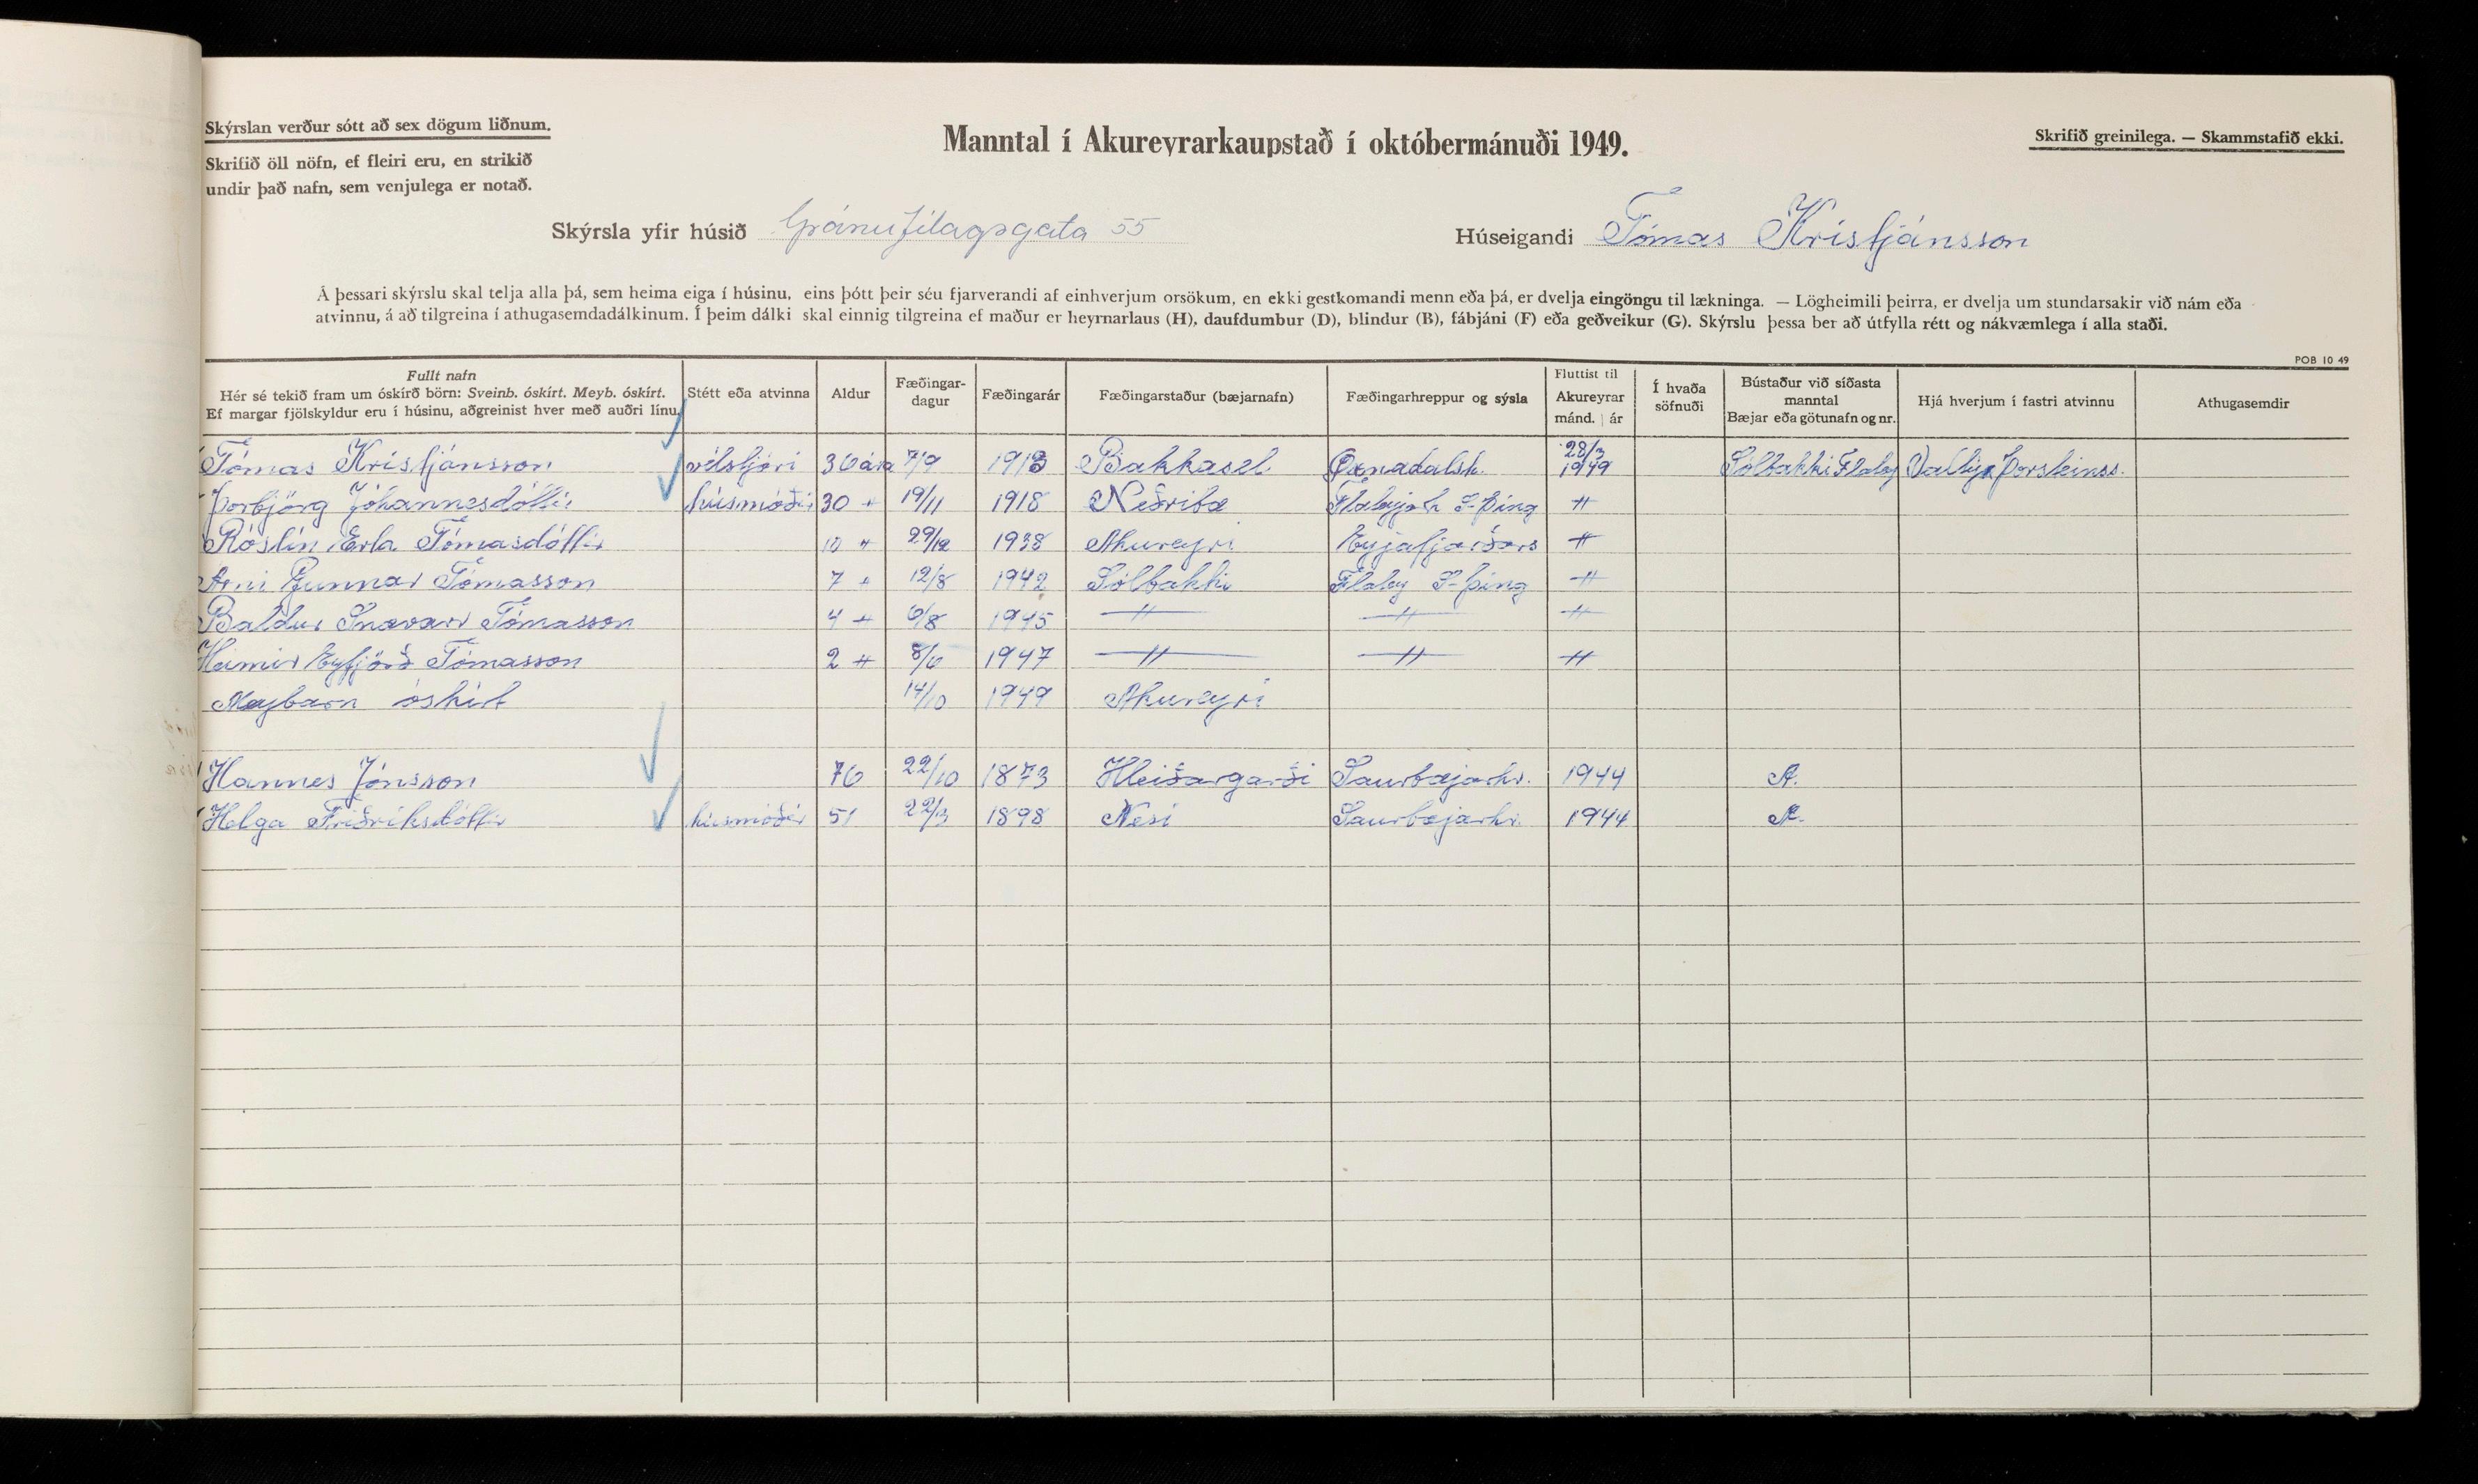 Skýrslan verður sótt að sex dögum liðnum.
Skrifið öll nöfn, ef fleiri eru, en strikið
undir það nafn, sem venjulega er notað.
Manntal í Akureyrarkaupstað í októbermánuði 1949.
Skrifið greinilega. — Skammstafið ekki.
Skýrsla yfir húsið Gránufélagsgata 55
Húseigandi Tómas Kristjánsson
Á þessari skýrslu skal telja alla þá, sem heima eiga í húsinu, eins þótt þeir séu fjarverandi af einhverjum orsökum, en ekki gestkomandi menn eða þá, er dvelja eingöngu til lækninga. — Lögheimili þeirra, er dvelja um stundarsakir við nám eða
atvinnu, á að tilgreina í athugasemdadálkinum. Í þeim dálki skal einnig tilgreina ef maður er heyrnarlaus (H), daufdumbur (D), blindur (B), fábjáni (F) eða geðveikur (G). Skýrslu þessa ber að útfylla rétt og nákvæmlega í alla staði.
POB 10 49
Fullt nafn
Hér sé tekið fram um óskírð börn: Sveinb. óskírt. Meyb. óskírt.
Ef margar fjölskyldur eru í húsinu, aðgreinist hver með auðri línu.
Stétt eða atvinna
Aldur
Fæðingar-
dagur
Fæðingarár
Fæðingarstaður (bæjarnafn)
Fæðingarhreppur og sýsla
Fluttist til
Akureyrar
mánd. | ár
Í hvaða
söfnuði
Bústaður við síðasta
manntal
Bæjar eða götunafn og nr.
Hjá hverjum í fastri atvinnu
Athugasemdir
Tómas Kristjánsson vélstjóri 36 ára 7/9 1913 Bakkasel Öxnadalsh. 28/3 1949 Sólbakki Flatey Valtýr Þorsteinss.
Þorbjörg Jóhannesdóttir húsmóðir 30 〃 19/11 1918 Neðribæ Flateyjarh S-Þing 〃
Róslín Erla Tómasdóttir 10 〃 29/12 1938 Akureyri Eyjafjarðars 〃
Árni Gunnar Tómasson 7 〃 12/8 1942 Sólbakki Flatey S-Þing 〃
Baldur Snævarr Tómasson 4 〃 6/8 1945 〃 〃 〃
Heimir Eyfjörð Tómasson 2 〃 8/6 1947 〃 〃 〃
Meybarn óskírt 14/10 1949 Akureyri
Hannes Jónsson 76 22/10 1873 Hleiðargarði Saurbæjarhr. 1944 A.
Helga Friðriksdóttir húsmóðir 51 22/3 1898 Nesi Saurbæjarhr. 1944 A.